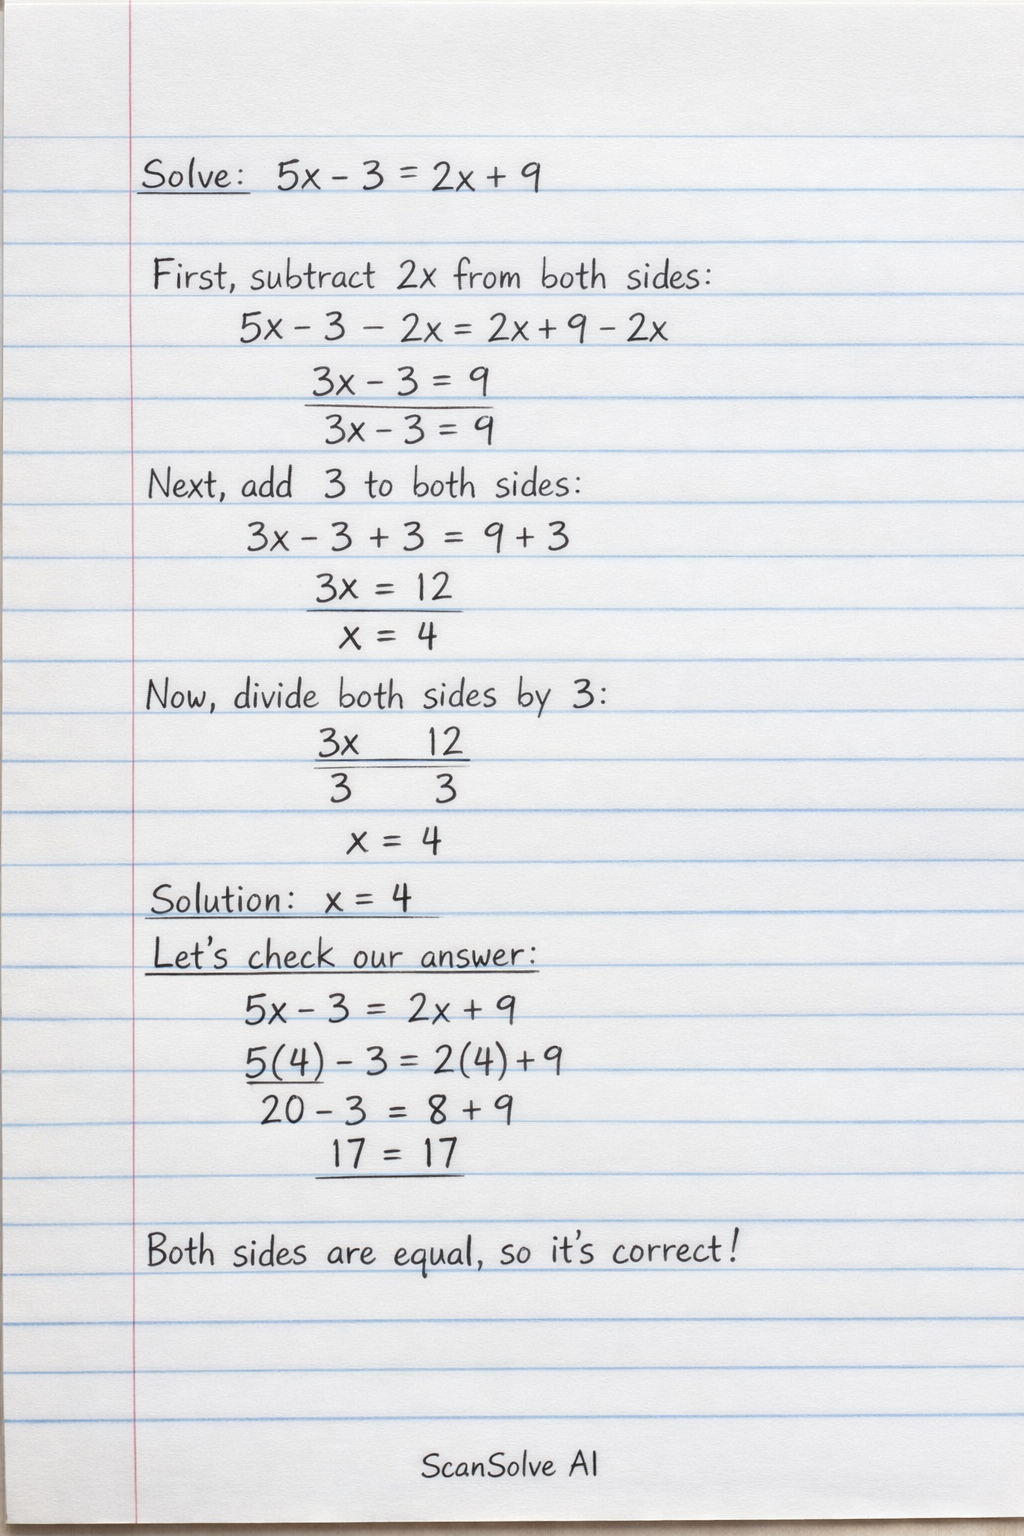 Solve: 5x - 3 = 2x + 9
First, subtract 2x from both sides:
5x - 3 - 2x = 2x + 9 - 2x
3x - 3 = 9
3x - 3 = 9
Next, add 3 to both sides:
3x - 3 + 3 = 9 + 3
3x = 12
x = 4
Now, divide both sides by 3:
3x 12
3 3
x = 4
Solution: x = 4
Let's check our answer:
5x - 3 = 2x + 9
5(4) - 3 = 2(4) + 9
20 - 3 = 8 + 9
17 = 17
Both sides are equal, so it's correct!
ScanSolve AI